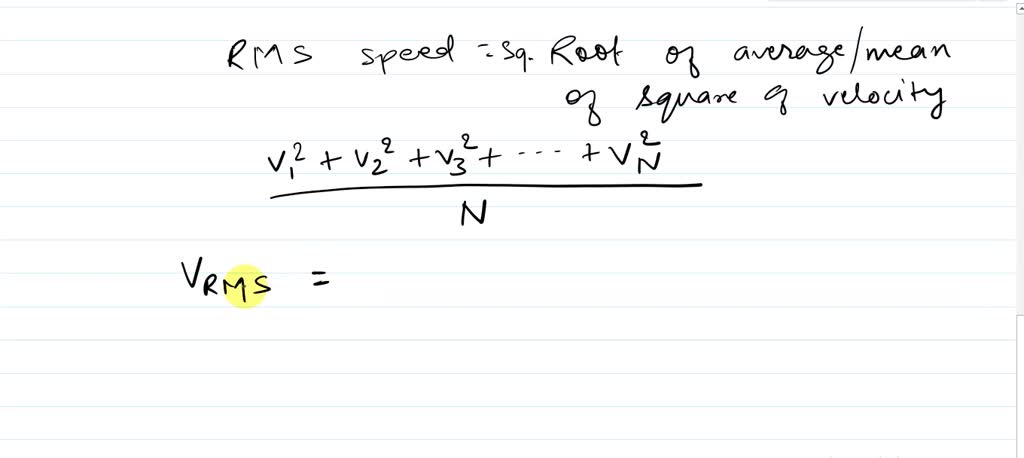 RMS speed = Sq. Root of average/mean
of square of velocity
v₁² + v₂² + v₃² + ---- + v_N²
N
V_RMS =